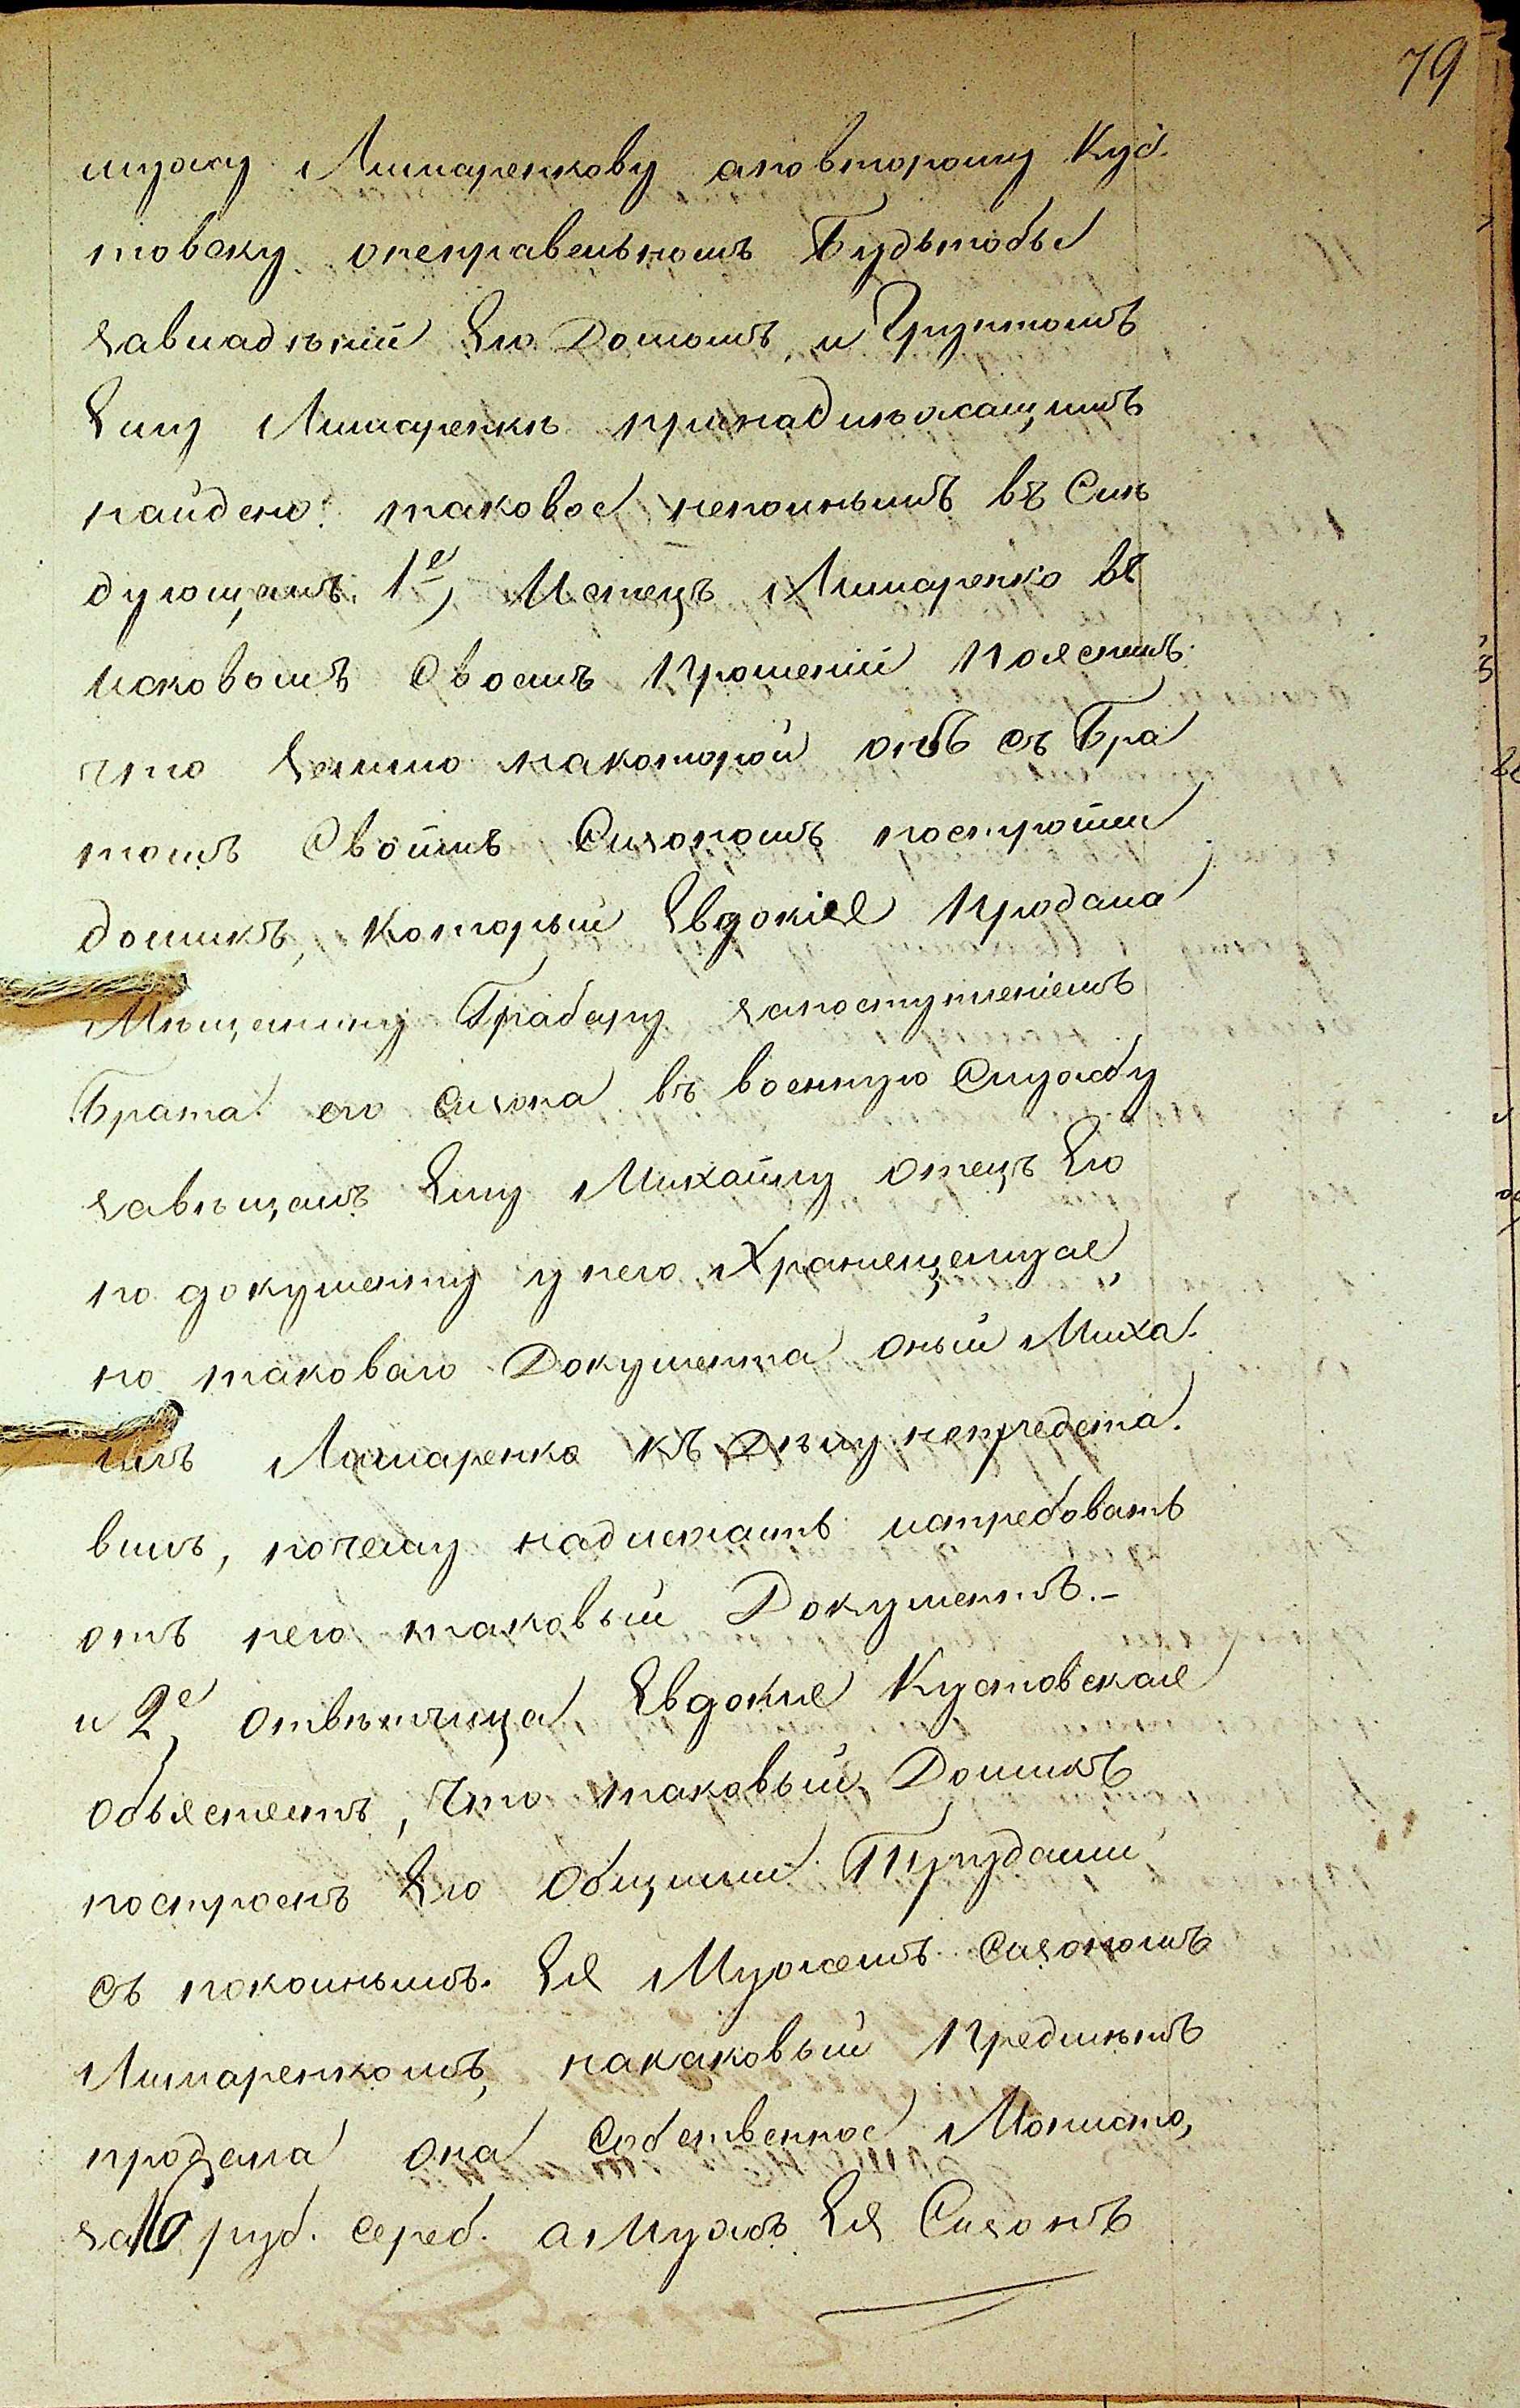 79
мужу Лимаренкову аповторому Кус.
товску онеправельномъ Будьтобы
завладѣнiй Его Домомъ и Грунтомъ
Ему Лимаренкѣ принадлѣжащимъ
найдено: таковое неполнымъ въ Слѣ
дующемъ. 1е, Истецъ Лимаренко въ
исковомъ Своемъ Прошенiи Пояснилъ.
что Землю накоторой онъ съ Бра
томъ Своимъ Сизономъ построили
домикъ, который Евдокiя Продала
Мѣщанину Грабару запоступленiемъ
Брата его Сизона въ военную Службу
завѣщалъ Ему Михаилу отецъ Его
по документу унего Хранещемуся,
но таковаго Документа оный Миха.
илъ Лимаренко къ Дѣлу непредста.
вилъ, почему надлежитъ истребовать
отъ него таковый Документъ.-
и 2е, отвѣтчица Евдокия Кустовская
объясняетъ, что таковый Домикъ
построенъ Ею Общими Трудами
съ покойнымъ. Ея Мужемъ Сизономъ
Лимаренкомъ, накаковый Предмѣтъ
продала она Собственное Монисто,
за 10 руб. сереб. а Мужъ Ея Сизонъ